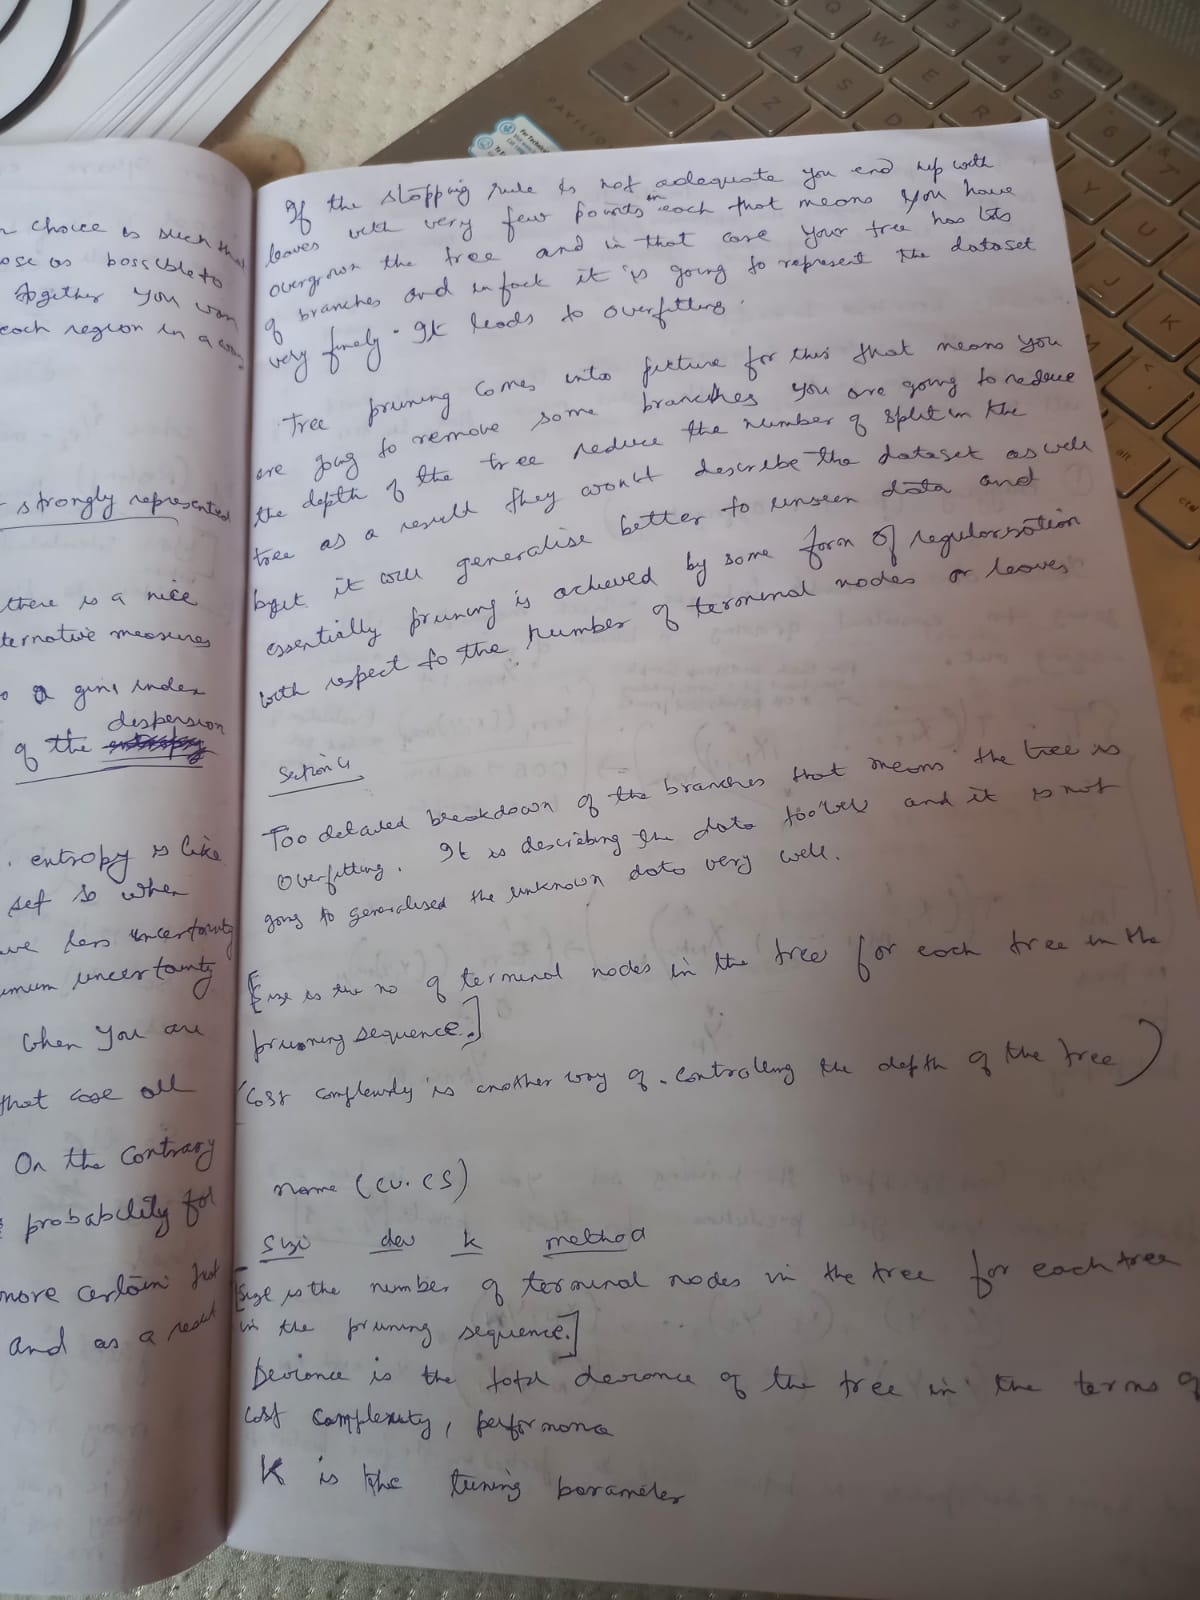 n choice is such that
ose as possible to
together you wan
each region in a way
strongly represented
there is a nice
ternative measures
o a gini index
dispersion
of the
. entropy is like
set so when
ave less uncertainty
imum uncertainty
when you are
that case all
On the contrary
probability for
more certain that
and as a result
If the stopping rule is not adequate you end up with
leaves with very few points in each that means you have
overgrown the tree and in that case your tree has lots
of branches and in fact it is going to represent the dataset
very finely. It leads to overfitting.
Tree pruning comes into picture for this that means you
are going to remove some branches you are going to reduce
the depth of the tree reduce the number of split in the
tree as a result they won't describe the dataset as well
but it will generalise better to unseen data and
essentially pruning is achieved by some form of regularisation
with respect to the number of terminal nodes or leaves
Section 4
Too detailed breakdown of the branches that means the tree is
overfitting. It is describing the data too well and it is not
going to generalised the unknown data very well.
[Size is the no of terminal nodes in the tree for each tree in the
pruning sequence.]
(Cost complexity is another way of controlling the depth of the tree)
name (cv.cs)
size dev k method
[Size is the number of terminal nodes in the tree for each tree
in the pruning sequence.]
Deviance is the total deviance of the tree in the terms of
cost complexity, performance
K is the tuning parameter
PAVILION
Q
W
E
R
A
S
D
Z
Y
U
J
K
alt
ctrl